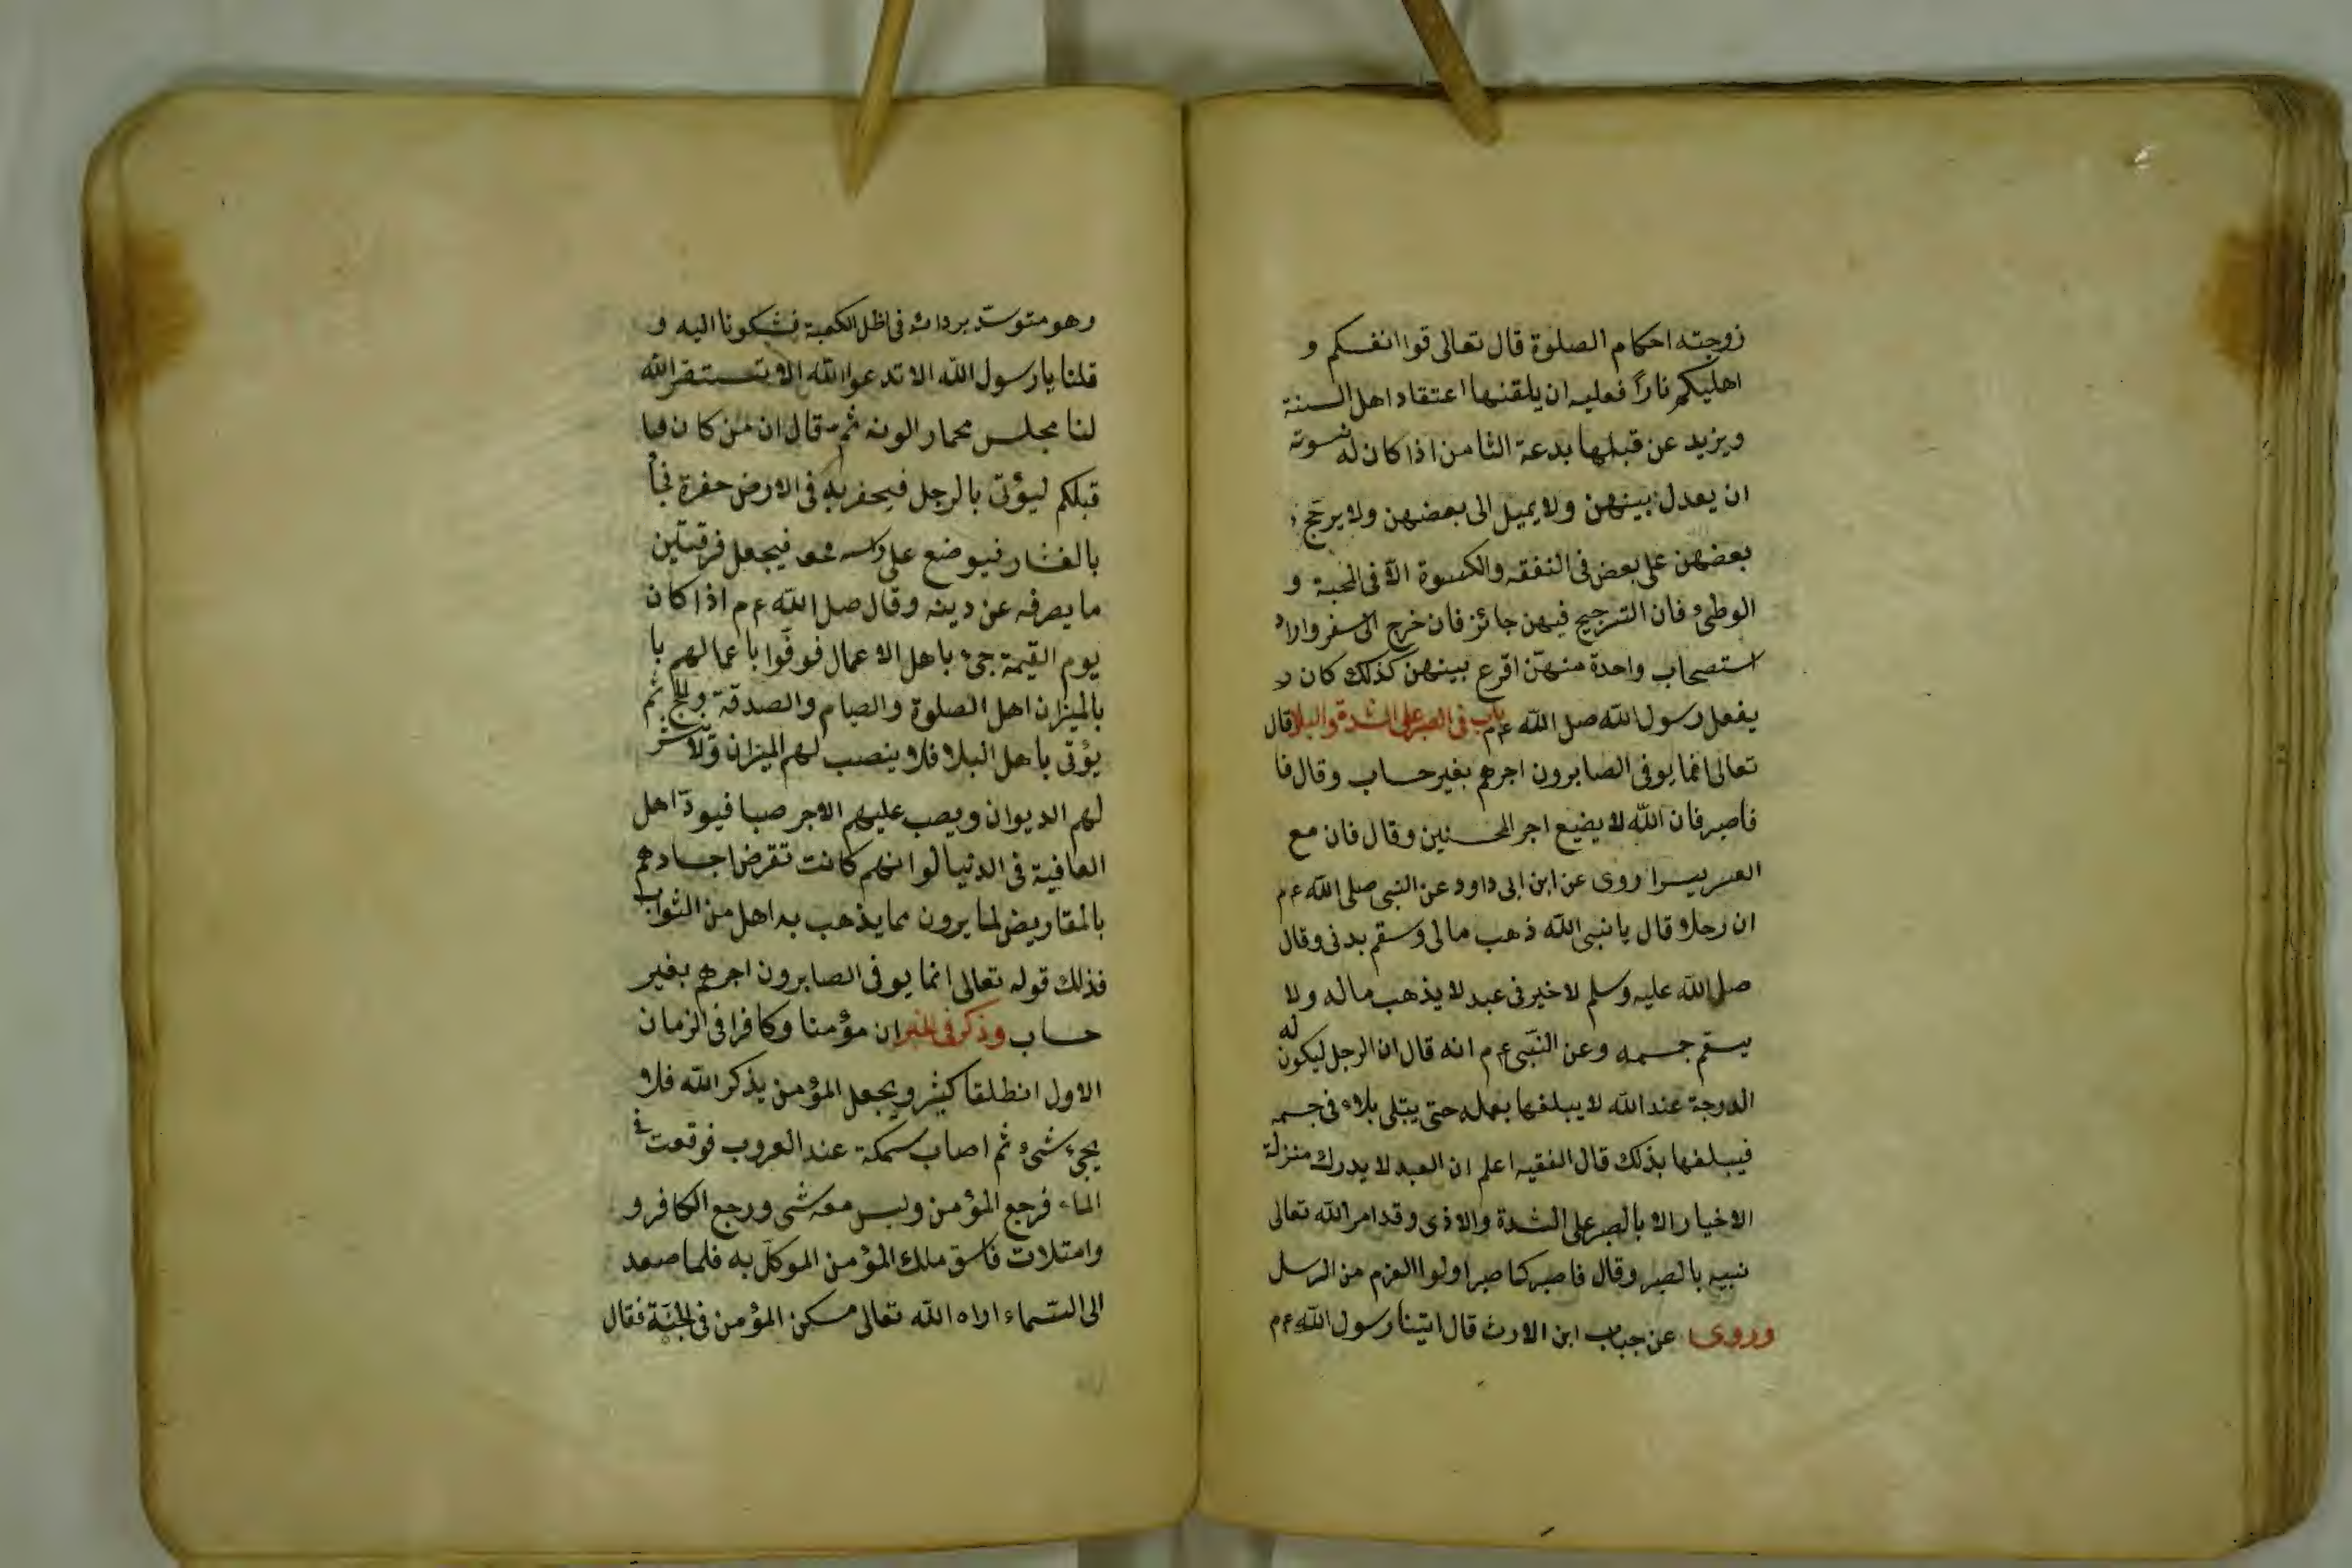 زوجته احكام الصلوة قال تعالى قوا انفسكم و
اهليكم نارًا فعليه ان يلقنها اعتقاد اهل السنة
ويزيد عن قبلها بدعة الثامن اذا كان له نسوته
ان يعدل بينهن ولا يميل الى بعضهن ولا يرجح
بعضهن على بعض فى النفقه والكسوة الا فى المحبة و
الوطئ فان الترجيح فيهن جائز فان خرج الى سفر واراد
استصحاب واحدة منهن اقرع بينهن كذلك كان ر
يفعل رسول الله صل الله ع م باب فى الصبر على الشدة والبلا قال
تعالى انما يوفى الصابرون اجرهم بغير حساب وقال فا
فاصبر فان الله لا يضيع اجر المحسنين وقال فان مع
العسر يسرا روى عن ابن ابى داود عن النبى صلى الله ع م
ان رجلا قال يا نبى الله ذهب مالى وسقم بدنى وقال
صل الله عليه وسلم لا خير فى عبد لا يذهب ماله ولا
يسقم جسمه وعن النبى ع م انه قال ان الرجل ليكون له
الدرجة عند الله لا يبلغها بعمله حتى يبتلى بلاء فى جسمه
فيبلغها بذلك قال الفقيه اعلم ان العبد لا يدرك منزلة
الاخيار الا بالصبر على الشدة والاذى وقد امر الله تعالى
نبيه بالصبر وقال فاصبر كما صبر اولوا العزم من الرسل
وروى عن جباب ابن الارث قال اتينا رسول الله ع م
وهو متوسد بردائه فى ظل الكعبة فشكونا اليه و
قلنا يا رسول الله الا تدعوا الله الا تستنصر الله
لنا مجلس محمار الونه ثم قال ان من كان فيا
قبلكم ليؤتى بالرجل فيحفر به فى الارض حفرة فيأ
بالمنشار فيوضع على راسه فيجعل فرقتين
ما يصرفه عن دينه وقال صل الله ع م اذا كان
يوم القيمة جئ باهل الاعمال فوفوا باعمالهم با
بالميزان اهل الصلوة والصيام والصدقة والحج ثم
يؤتى باهل البلا فلا ينصب لهم الميزان ولا ينشر
لهم الديوان ويصب عليهم الاجر صبا فيود اهل
العافية فى الدنيا لو انهم كانت تقرض اجسادهم
بالمقاريض لما يرون مما يذهب به اهل من الثواب
فذلك قوله تعالى انما يوفى الصابرون اجرهم بغير
حساب وذكر فى الخبر ان مؤمنا وكافرا فى الزمان
الاول انطلقا كثير ويجعل المؤمن يذكر الله فلا
يجئ شئ ثم اصاب سمكة عند العروب فوقعت فى
الماء فرجع المؤمن وليس معه شى ورجع الكافر و
وامتلات فاسق ملك المؤمن الموكل به فلما صعد
الى السماء اراه الله تعالى مسكن المؤمن فى الجنة فقال